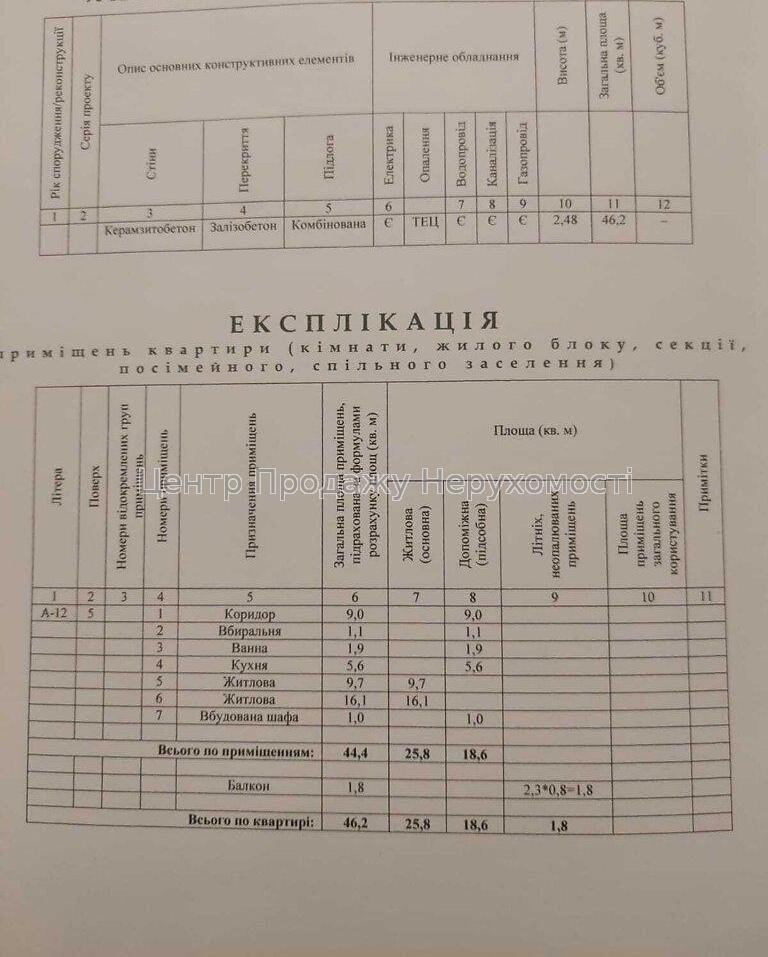 Рік спорудження/реконструкції
Серія проекту
Опис основних конструктивних елементів
Інженерне обладнання
Висота (м)
Загальна площа (кв. м)
Об'єм (куб. м)
Стіни
Перекриття
Підлога
Електрика
Опалення
Водопровід
Каналізація
Газопровід
1 2 3 4 5 6 7 8 9 10 11 12
Керамзитобетон Залізобетон Комбінована Є ТЕЦ Є Є Є 2,48 46,2 –
ЕКСПЛІКАЦІЯ
приміщень квартири (кімнати, жилого блоку, секції,
посімейного, спільного заселення)
Літера
Поверх
Номери відокремлених груп приміщень
Номери приміщень
Призначення приміщень
Загальна площа приміщень, підрахована за формулами розрахунку площ (кв. м)
Площа (кв. м)
Житлова (основна)
Допоміжна (підсобна)
Літніх, неопалюваних приміщень
Площа приміщень загального користування
Примітки
Центр Продажу Нерухомості
1 2 3 4 5 6 7 8 9 10 11
А-12 5 1 Коридор 9,0 9,0
2 Вбиральня 1,1 1,1
3 Ванна 1,9 1,9
4 Кухня 5,6 5,6
5 Житлова 9,7 9,7
6 Житлова 16,1 16,1
7 Вбудована шафа 1,0 1,0
Всього по приміщенням: 44,4 25,8 18,6
Балкон 1,8 2,3*0,8=1,8
Всього по квартирі: 46,2 25,8 18,6 1,8